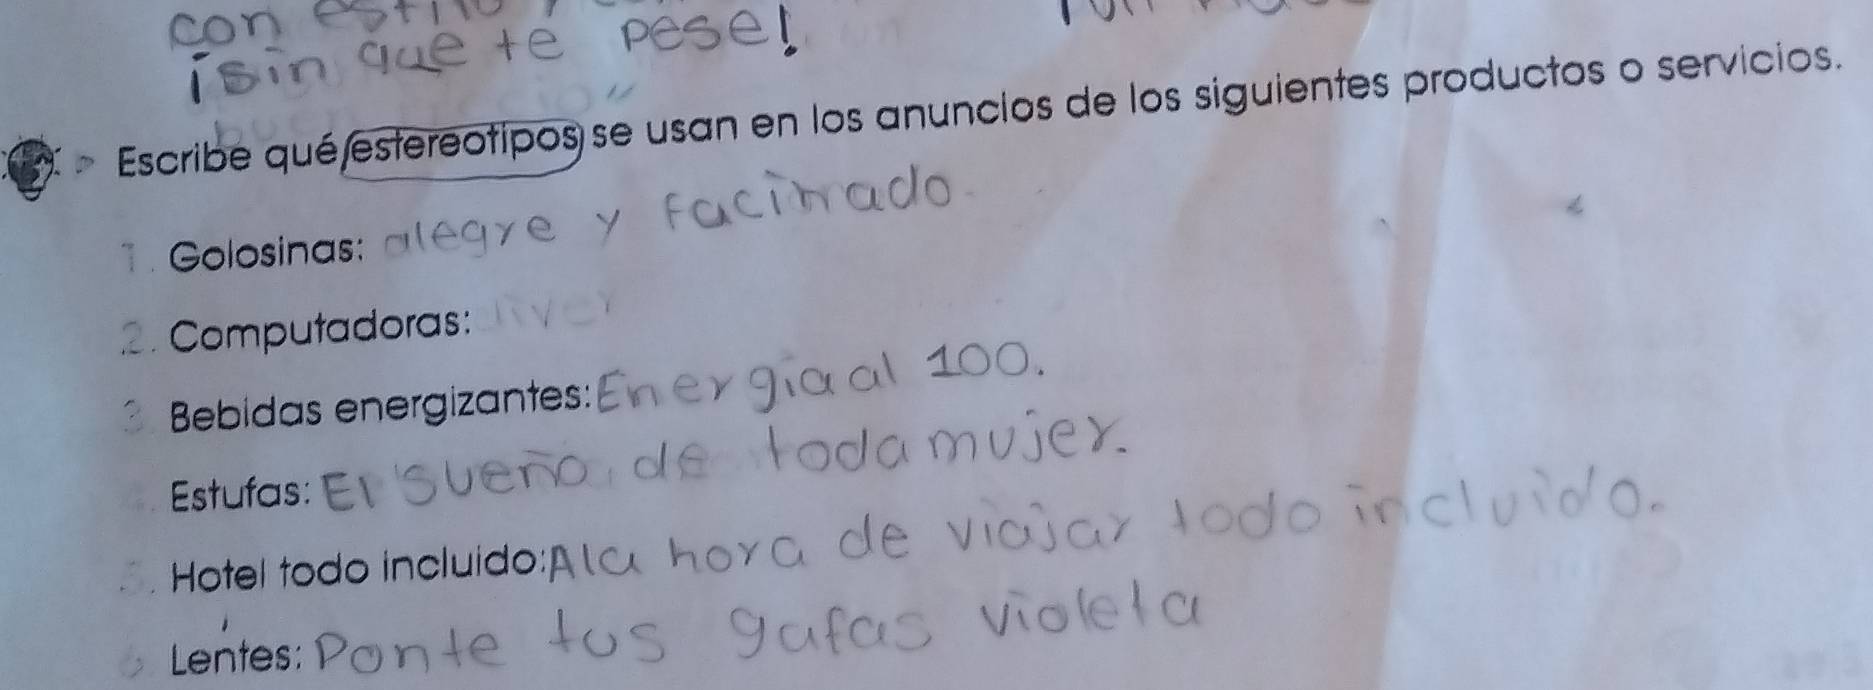 con estilo y
¡sin que te pese!
Escribe qué estereotipos se usan en los anuncios de los siguientes productos o servicios.
1. Golosinas: alegre y facinado.
2. Computadoras:
3. Bebidas energizantes: Energia al 100.
Estufas: El sueño de toda mujer.
5. Hotel todo incluido: A la hora de viajar todo incluido.
6 Lentes: Ponte tus gafas violeta